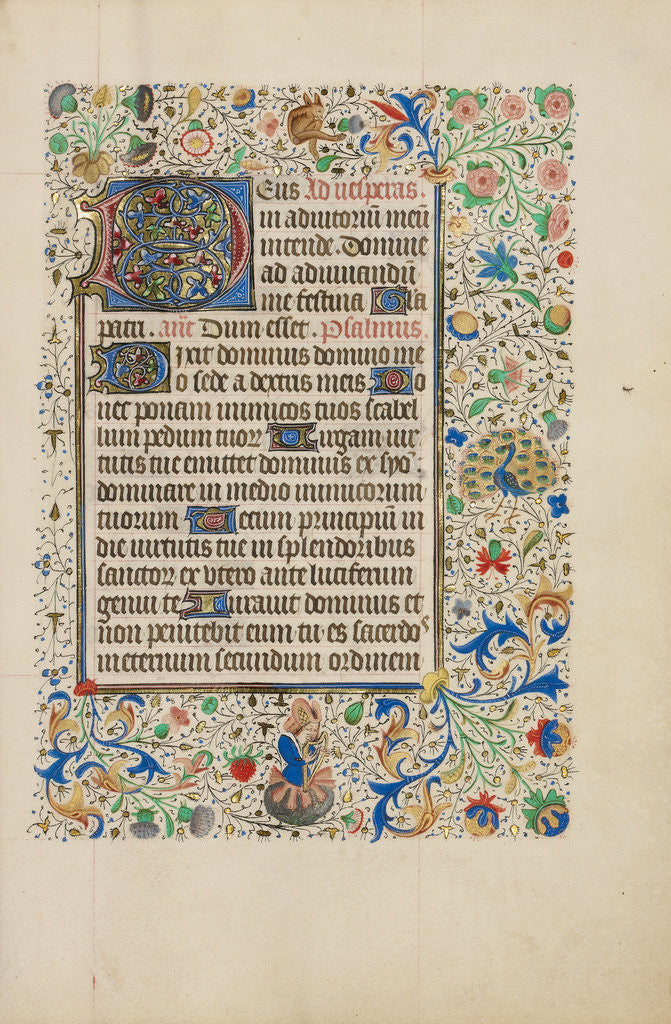 Deus Ad vesperas.
in adiutoriū meū
intende. Domine
ad adiuuandū
me festina. Gła
patri. añt Dum esset. Psalmus.
Dixit dominus domino me
o sede a dextris meis Do
nec ponam inimicos tuos scabel
lum pedum tuorꝝ Uirgam uir
tutis tue emittet dominus ex syō.
dominare in medio inimicorum
tuorum Tecum principiū in
die uirtutis tue in splendoribus
sanctorꝝ ex vtero ante luciferum
genui te Iurauit dominus et
non penitebit eum tu es sacerdos
in eternum secundum ordinem